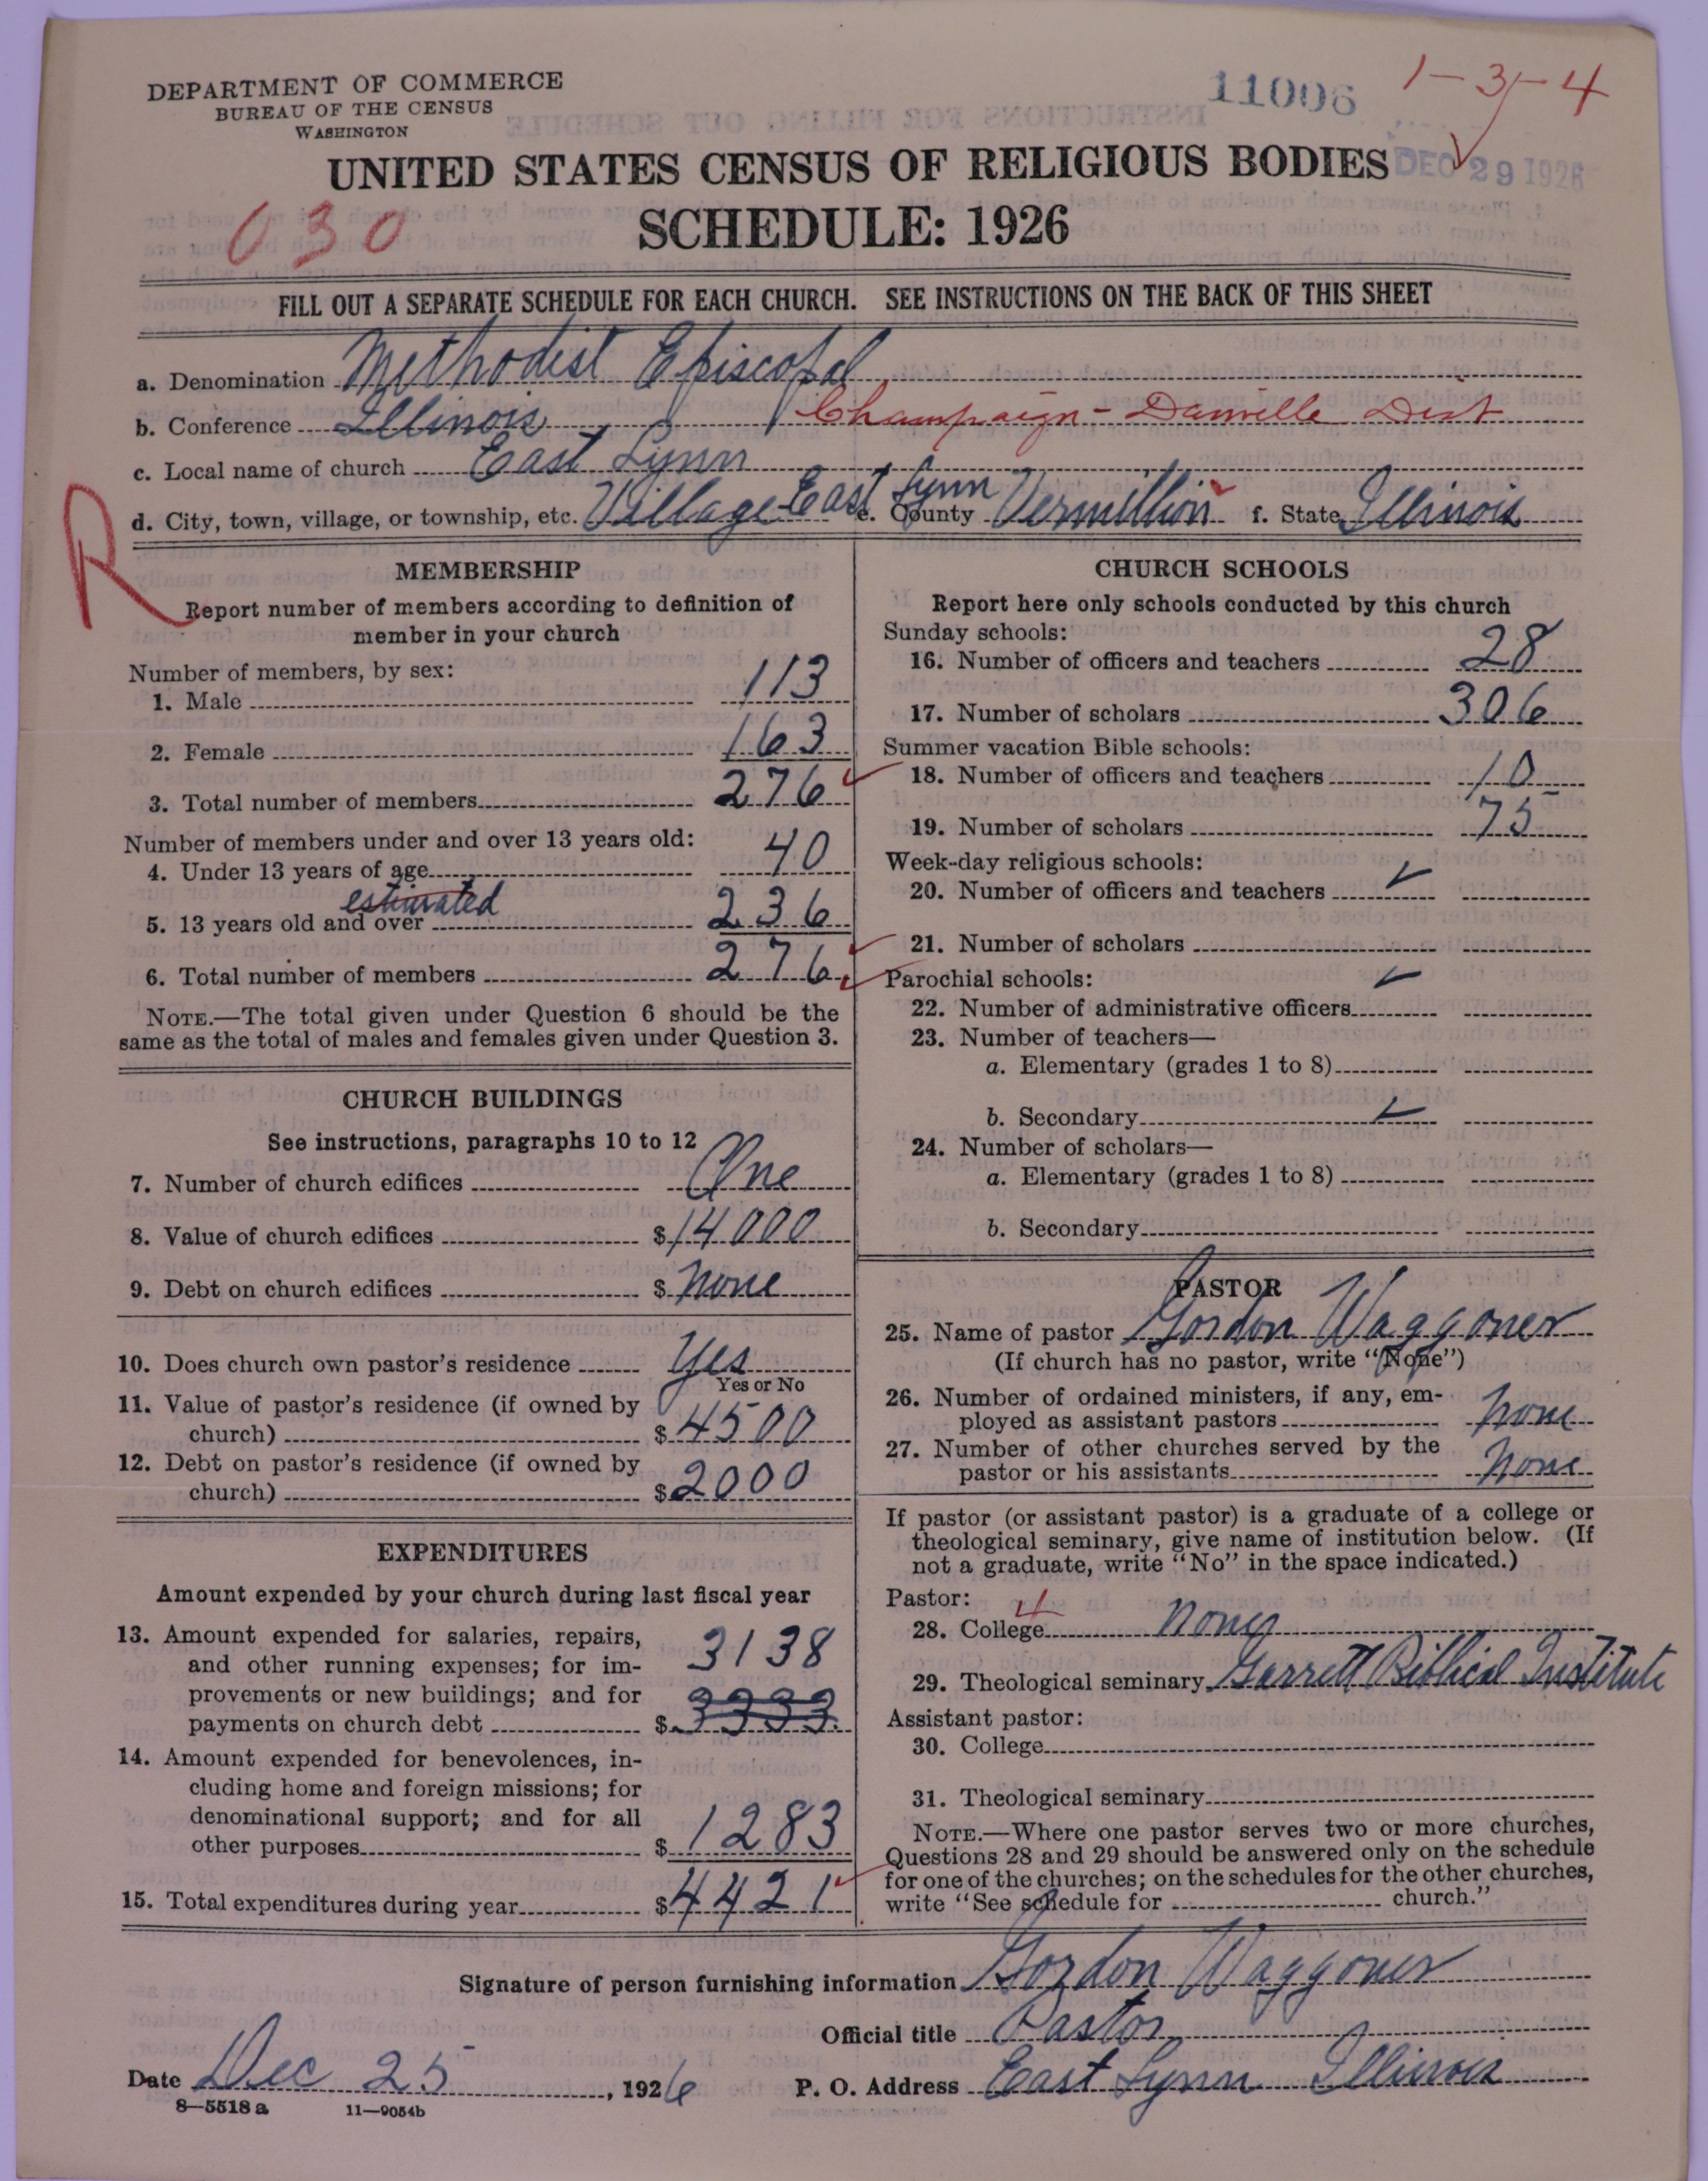 DEPARTMENT OF COMMERCE
BUREAU OF THE CENSUS
WASHINGTON
11006
1-3-4
UNITED STATES CENSUS OF RELIGIOUS BODIES
DEC 29 1926
030
SCHEDULE: 1926
FILL OUT A SEPARATE SCHEDULE FOR EACH CHURCH. SEE INSTRUCTIONS ON THE BACK OF THIS SHEET
a. Denomination Methodist Episcopal
b. Conference Illinois Champaign-Danville Dist
c. Local name of church East Lynn
d. City, town, village, or township, etc. Village East Lynn e. County Vermillion f. State Illinois
R
MEMBERSHIP
Report number of members according to definition of
member in your church
Number of members, by sex:
1. Male 113
2. Female 163
3. Total number of members 276
Number of members under and over 13 years old:
4. Under 13 years of age 40
estimated
5. 13 years old and over 236
6. Total number of members 276
NOTE.—The total given under Question 6 should be the
same as the total of males and females given under Question 3.
CHURCH BUILDINGS
See instructions, paragraphs 10 to 12
7. Number of church edifices One
8. Value of church edifices $14000
9. Debt on church edifices $ None
10. Does church own pastor's residence Yes
Yes or No
11. Value of pastor's residence (if owned by
church) $4500
12. Debt on pastor's residence (if owned by
church) $2000
EXPENDITURES
Amount expended by your church during last fiscal year
13. Amount expended for salaries, repairs,
and other running expenses; for im- 3138
provements or new buildings; and for
payments on church debt $ 3333
14. Amount expended for benevolences, in-
cluding home and foreign missions; for
denominational support; and for all
other purposes $ 1283
15. Total expenditures during year $4421
CHURCH SCHOOLS
Report here only schools conducted by this church
Sunday schools:
16. Number of officers and teachers 28
17. Number of scholars 306
Summer vacation Bible schools:
18. Number of officers and teachers 10
19. Number of scholars 75
Week-day religious schools:
20. Number of officers and teachers
21. Number of scholars
Parochial schools:
22. Number of administrative officers
23. Number of teachers—
a. Elementary (grades 1 to 8)
b. Secondary
24. Number of scholars—
a. Elementary (grades 1 to 8)
b. Secondary
PASTOR
25. Name of pastor Gordon Waggoner
(If church has no pastor, write "None")
26. Number of ordained ministers, if any, em-
ployed as assistant pastors none
27. Number of other churches served by the
pastor or his assistants none
If pastor (or assistant pastor) is a graduate of a college or
theological seminary, give name of institution below. (If
not a graduate, write "No" in the space indicated.)
Pastor: 4
28. College none
29. Theological seminary Garrett Biblical Institute
Assistant pastor:
30. College
31. Theological seminary
NOTE.—Where one pastor serves two or more churches,
Questions 28 and 29 should be answered only on the schedule
for one of the churches; on the schedules for the other churches,
write "See schedule for church."
Signature of person furnishing information Gordon Waggoner
Official title Pastor
Date Dec 25, 1926 P. O. Address East Lynn Illinois
8—5518 a 11—9054b